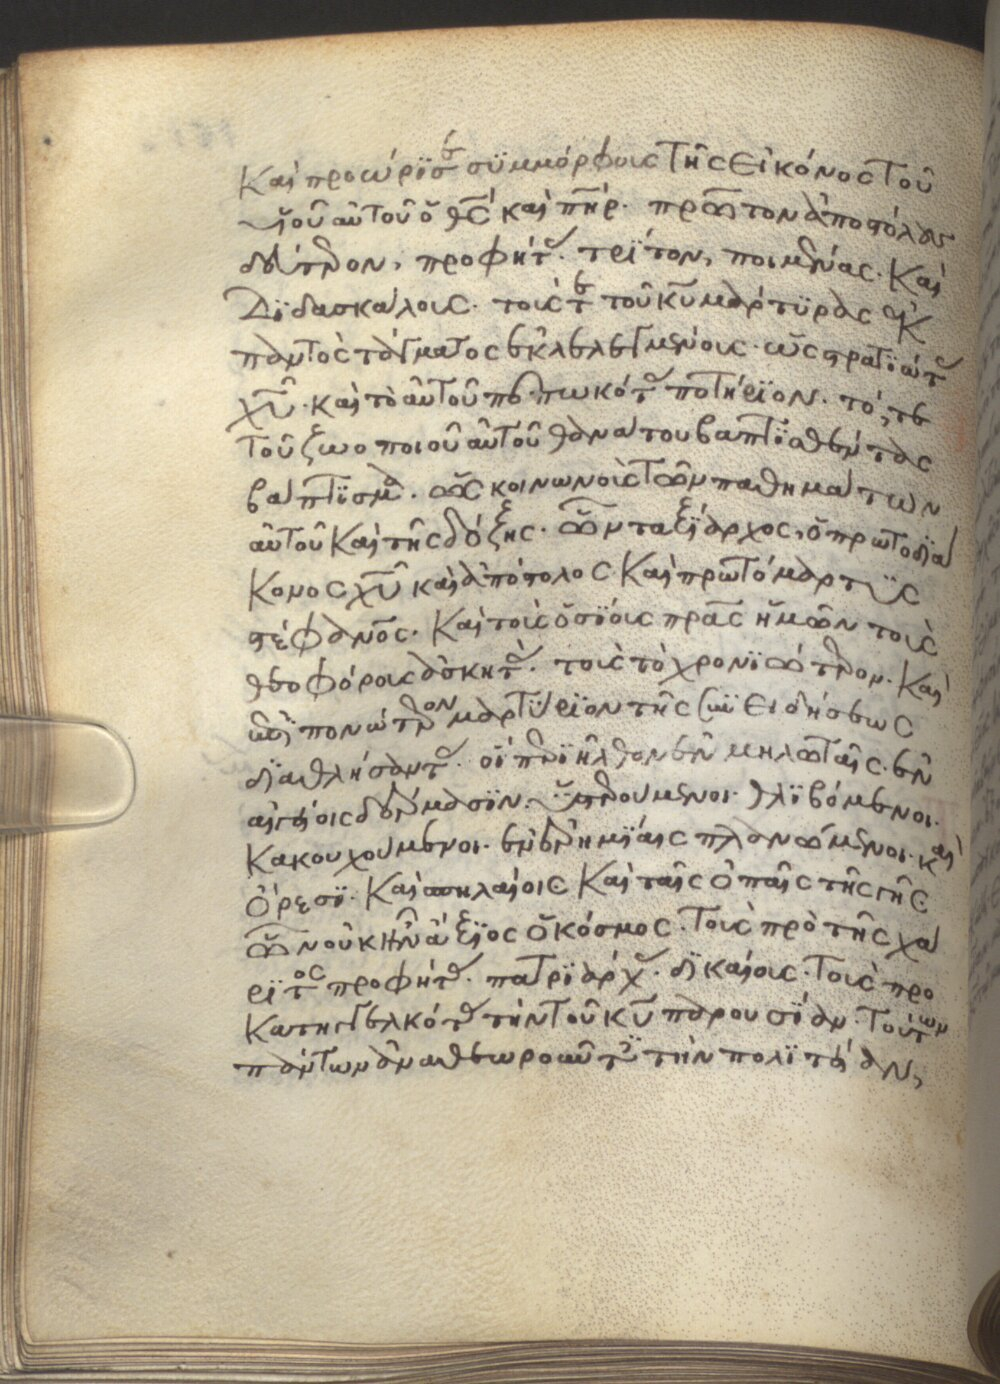 Καὶ προώρϊσε σϋμμόρφοις τῆς εἰκόνος τοῦ
ϋἱοῦ αὐτοῦ ὁ θς καὶ πηρ. πρῶτον ἀποστόλους
δεύτερον, προφήτ. τρίτον, ποιμένας. Καὶ
Δϊδασκάλοις. τοις τε τοῦ κυ μάρτϋρας ἐκ
παντὸς τάγματος ἐκλελεγμένοις. ὡς στρατϊώτ
χυ. καὶ τὸ αὐτοῦ πεπωκότ ποτήριον. τό, τε
τοῦ ζωοποιοῦ αὐτοῦ θανάτου βαπτϊσθέντας
βάπτϊσμα. ὡς κοινωνοὶς τῶν παθημάτων
αὐτοῦ Καὶ τῆς δόξης. ὧν ταξϊάρχος, ὁ πρωτοδϊά
Κονος χυ καὶ ἀπόστολος Καὶ πρωτόμαρτϋς
στέφανος. Καὶ τοις ὁσϊοις πρας ἡμῶν τοις
θεοφόροις ἀσκητ. τοις τὸ χρονϊώτερον. Καὶ
ἐπϊπονώτερον μαρτύριον τῆς συνειδήσεως
δϊαθλήσαντ. οἱ περϊῆλθον ἐν μηλωταῖς. ἐν
αἰγείοις δέρμασϊν. ὑστερούμενοι. θλϊβόμενοι.
Κακουχούμενοι. ἐν ἐρημϊαις πλανώμενοι. καὶ
ὄρεσϊ. Καὶ σπηλαίοις Καὶ ταῖς ὀπαῖς τῆς γῆς
ὧν οὐκ ἦν ἄξϊος ὁ κόσμος. Τοις πρὸ τῆς χά
ριτος προφήτ. πατρϊάρχ. δϊκαίοις. Τοις προ
Κατηγγελκότ τὴν τοῦ κυ παρουσϊαν. Τούτων
πάντων ἀναθεωροῦντ τὴν πολϊτείαν,